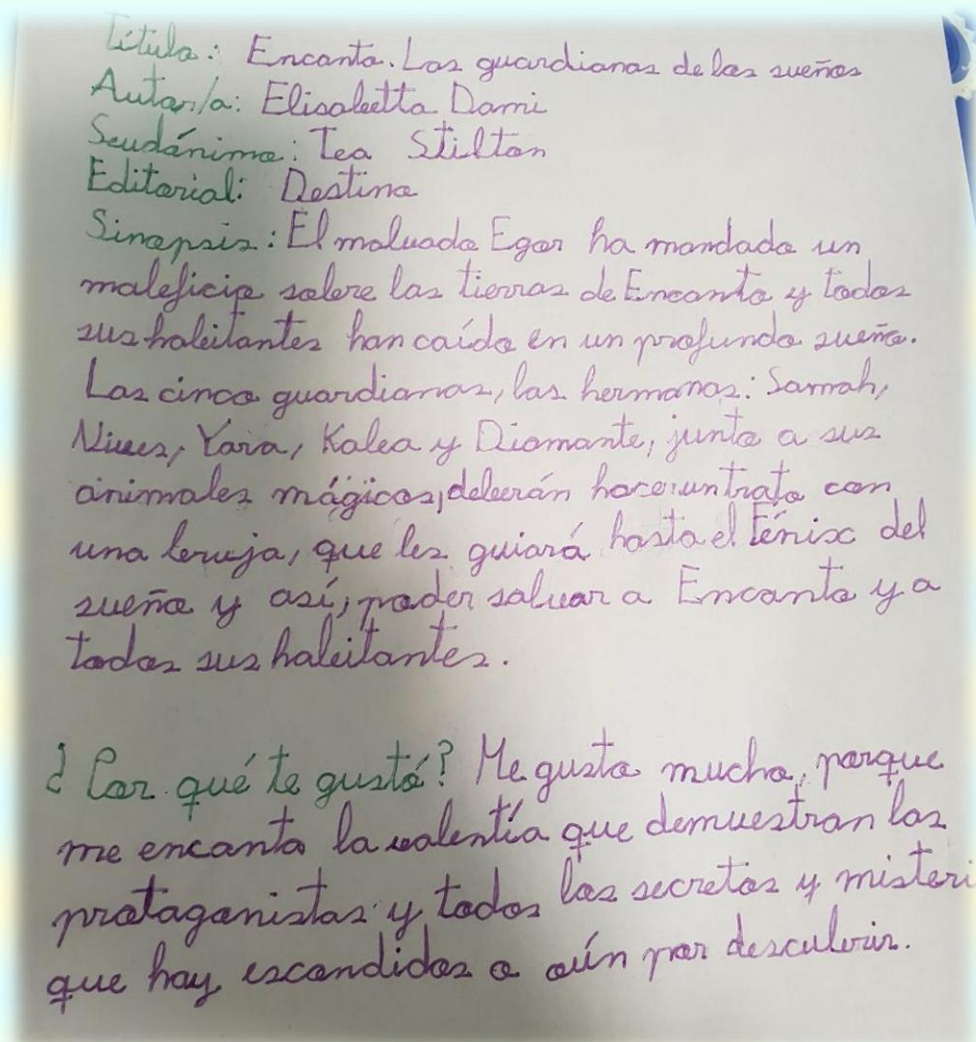 Título: Encanto. Las guardianas de los sueños
Autor/a: Elisabetta Dami
Seudónimo: Tea Stilton
Editorial: Destino
Sinopsis: El malvado Egor ha mandado un
maleficio sobre las tierras de Encanto y todos
sus habitantes han caído en un profundo sueño.
Las cinco guardianas, las hermanas: Samah,
Nives, Yara, Kalea y Diamante, junto a sus
animales mágicos, deberán hacer un trato con
una bruja, que les guiará hasta el Fénix del
sueño y así, poder salvar a Encanto y a
todos sus habitantes.
¿Por qué te gustó? Me gusta mucho, porque
me encanta la valentía que demuestran las
protagonistas y todos los secretos y misteri
que hay escondidos o aún por descubrir.